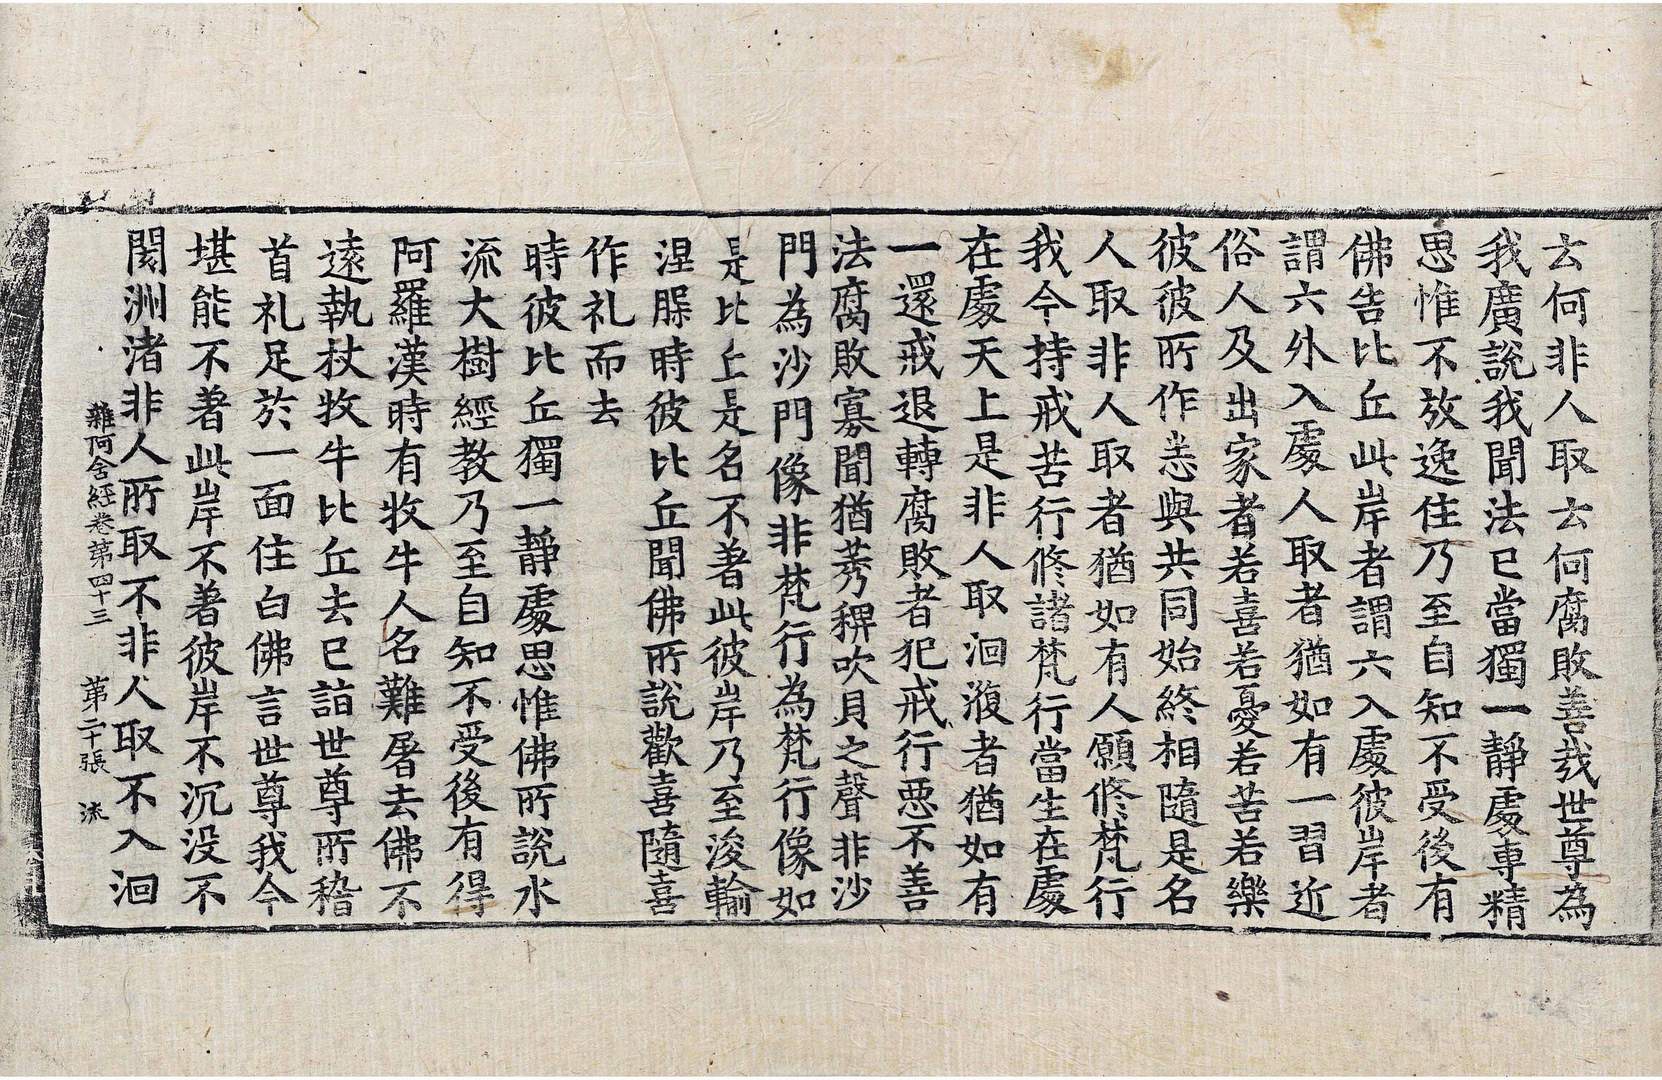 云何非人取云何腐敗善哉世尊為
我廣說我聞法已當獨一靜處專精
思惟不放逸住乃至自知不受後有
佛告比丘此岸者謂六入處彼岸者
謂六外入處人取者猶如有一習近
俗人及出家者若喜若憂若苦若樂
彼彼所作悉與共同始終相隨是名
人取非人取者猶如有人願修梵行
我今持戒苦行修諸梵行當生在處
在處天上是非人取洄澓者猶如有
一還戒退轉腐敗者犯戒行惡不善
法腐敗寡聞猶莠稗吹貝之聲非沙
門為沙門像非梵行為梵行像如
是比丘是名不著此彼岸乃至浚輸
涅槃時彼比丘聞佛所說歡喜隨喜
作礼而去
時彼比丘獨一靜處思惟佛所說水
流大樹經教乃至自知不受後有得
阿羅漢時有牧牛人名難屠去佛不
遠執杖牧牛比丘去已詣世尊所稽
首礼足於一面住白佛言世尊我今
堪能不著此岸不著彼岸不沉没不
閡洲渚非人所取不非人取不入洄
雜阿含經卷第四十三 第二十張 流